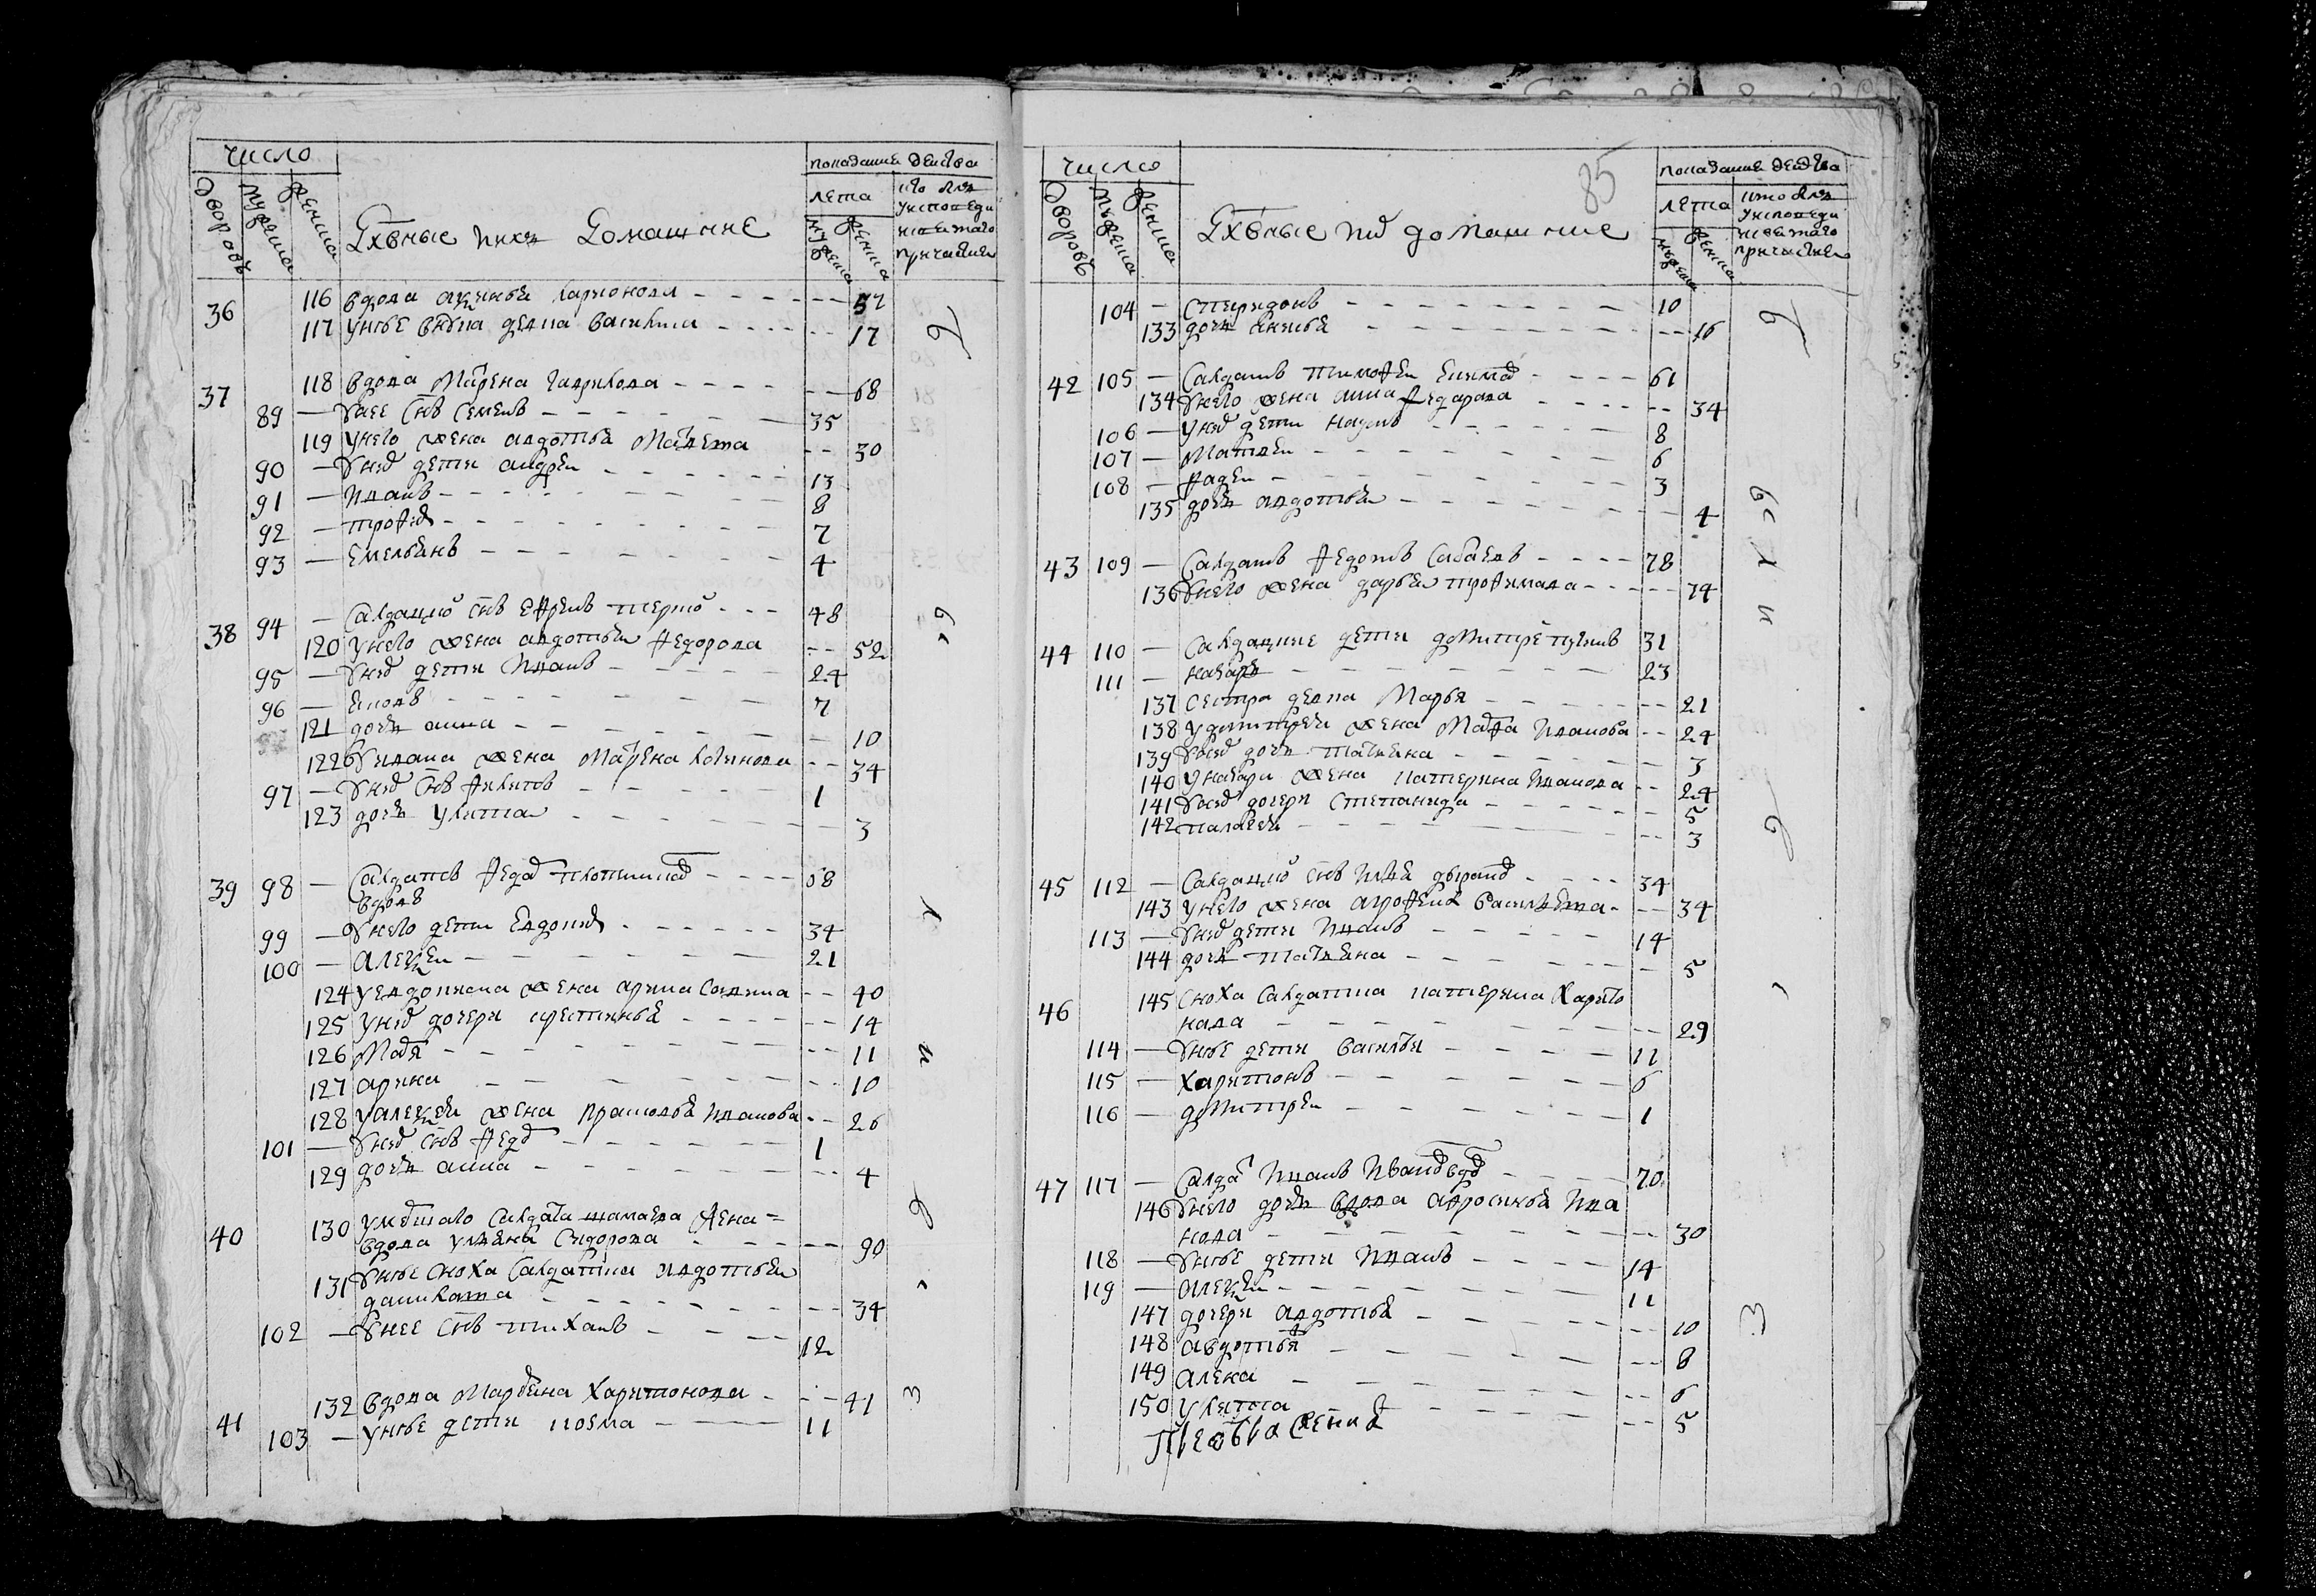 число
дворовъ
мужеска
женска
Дхвные ихъ Домашние
показание действа
лета
мужеска
женска
кто был у исповеди и святаго причастия
36 116 вдова аксинья ларионова 57
117 у нее внука девка василиса 17
37 118 вдова Матрена гаврилова 68
89 — у нее снъ Семенъ 35
119 у него жена авдотья Матвева 30
90 — у них дети андреи 13
91 — иванъ 8
92 — трофим 7
93 — Емельянъ 4
38 94 — Салдацкой снъ Ефремъ 48
120 у него жена авдотья федорова 52
95 — у них дети иванъ 24
96 — 7
121 дочь анна 10
122 у ивана жена Матрена 34
97 — у них снъ филипъ 1
123 дочь улита 3
39 98 — Салдатъ федор плотников 68
вдовъ
99 — у него дети Евдоким 34
100 — алексеи 21
124 у евдокима жена арина Савина 40
125 у них дочери крестинья 14
126 Марья 11
127 арина 10
128 у алексея жена прасковья иванова 26
101 — у них снъ федор 1
129 дочь анна 4
40 130 умершаго Салдата жена
вдова ульяна Сидорова 90
131 у нее сноха Салдатка авдотья
данилова 34
102 — у нее снъ тиханъ 12
41 132 вдова Марьяна Харитонова 41
103 — у нее дети козма 11
85
число
дворовъ
мужеска
женска
Дхвные их домашние
показание действа
лета
мужеска
женска
кто был у исповеди и святаго причастия
104 — Спиридонъ 10
133 дочь анисья 16
42 105 — Салдатъ тимофеи 61
134 у него жена анна федорова 34
106 — у них дети наумъ 8
107 — Матвеи 6
108 — фадеи 3
135 дочь авдотья 4
43 109 — Салдатъ федотъ 78
136 у него жена дарья трофимова 74
44 110 — Салдацкие дети дмитреи 31
111 — назаръ 23
137 Сестра девка Марья 21
138 у дмитрея жена иванова 24
139 у них дочь татьяна 3
140 у назара жена катерина иванова 24
141 у них дочери степанида 5
142 палагея 3
45 112 — Салдацкой снъ илья 34
143 у него жена агрофена василева 34
113 — у них дети иванъ 14
144 дочь татьяна 5
46 145 Сноха Салдатка катерина Харито
нова 29
114 — у нее дети василеи 11
115 — Харитонъ 6
116 — дмитреи 1
47 117 — Салдат иванъ 70
146 у него дочь вдова афросинья ива
нова 30
118 — у нее дети иванъ 14
119 — алексеи 11
147 дочери авдотья 10
148 авдотья 8
149 алена 6
150 улита 5
Преображения